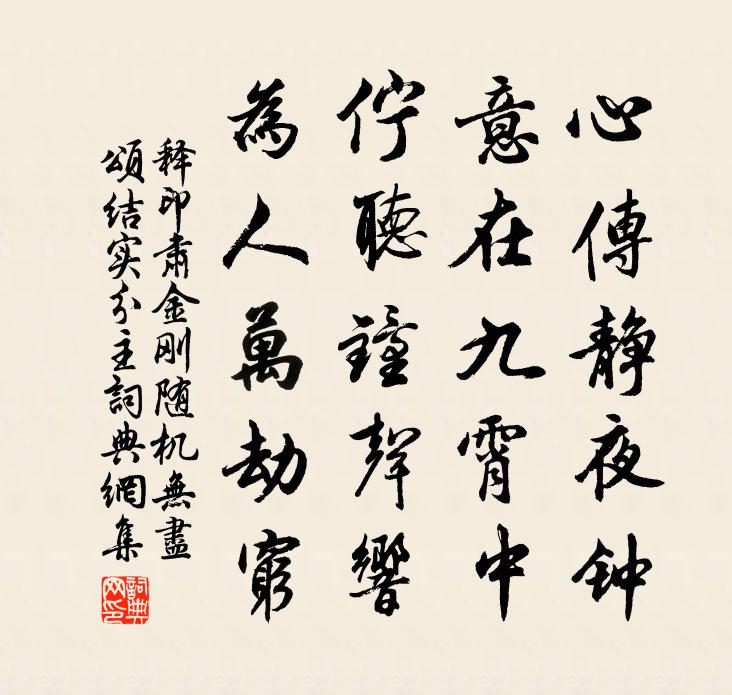 心傳静夜钟
意在九霄中
佇聽鐘聲響
為人萬劫窮
释印肃金刚随机無盡
頌结实分主詞典網集
詞典
网印